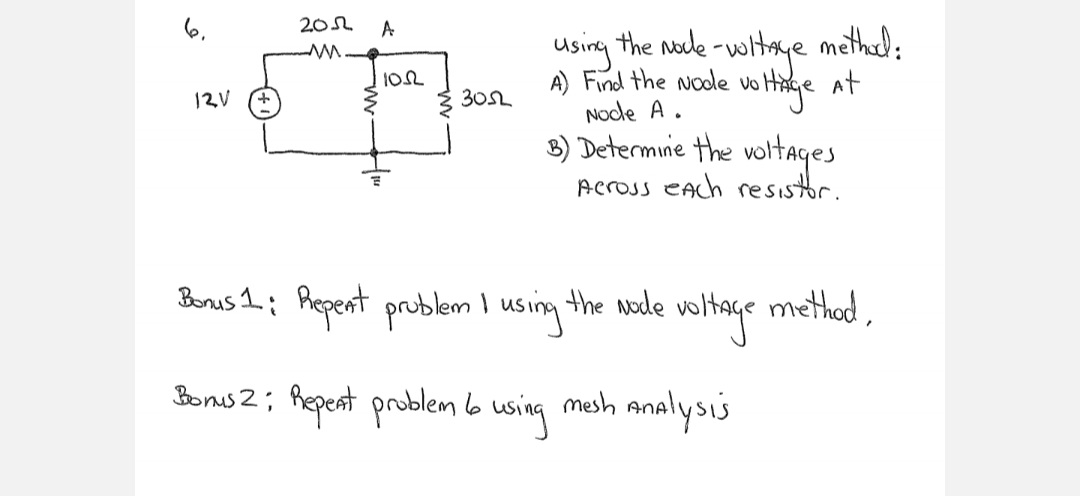 6.
20Ω A
10Ω
12V
+
30Ω
using the Node-voltage method:
A) Find the Node voltage At
Node A.
B) Determine the voltages
Across each resistor.
Bonus 1: Repeat problem 1 using the Node voltage method.
Bonus 2: Repeat problem 6 using mesh Analysis